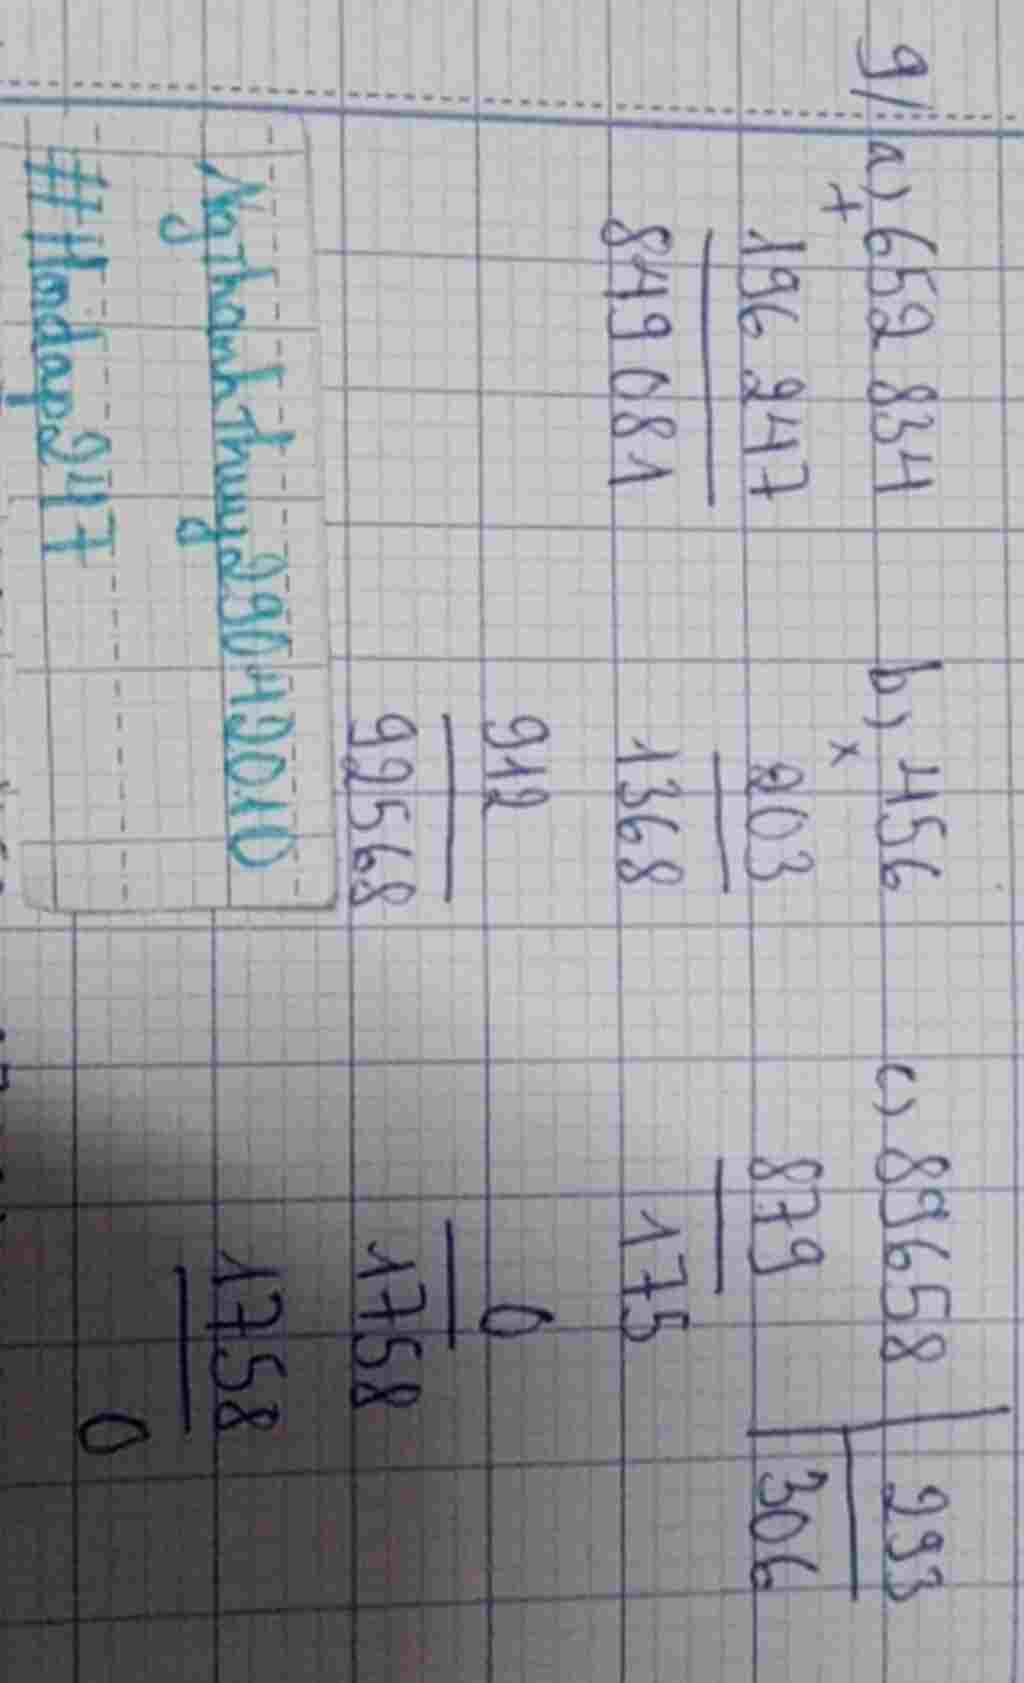 9/ a) 652 834 b) 456 c) 89658 293
+ x
196 247 203 879 306
849 081 1368 175
912 0
92568 1758
1758
0
NgThanhThuy29042010
#Hoidap247